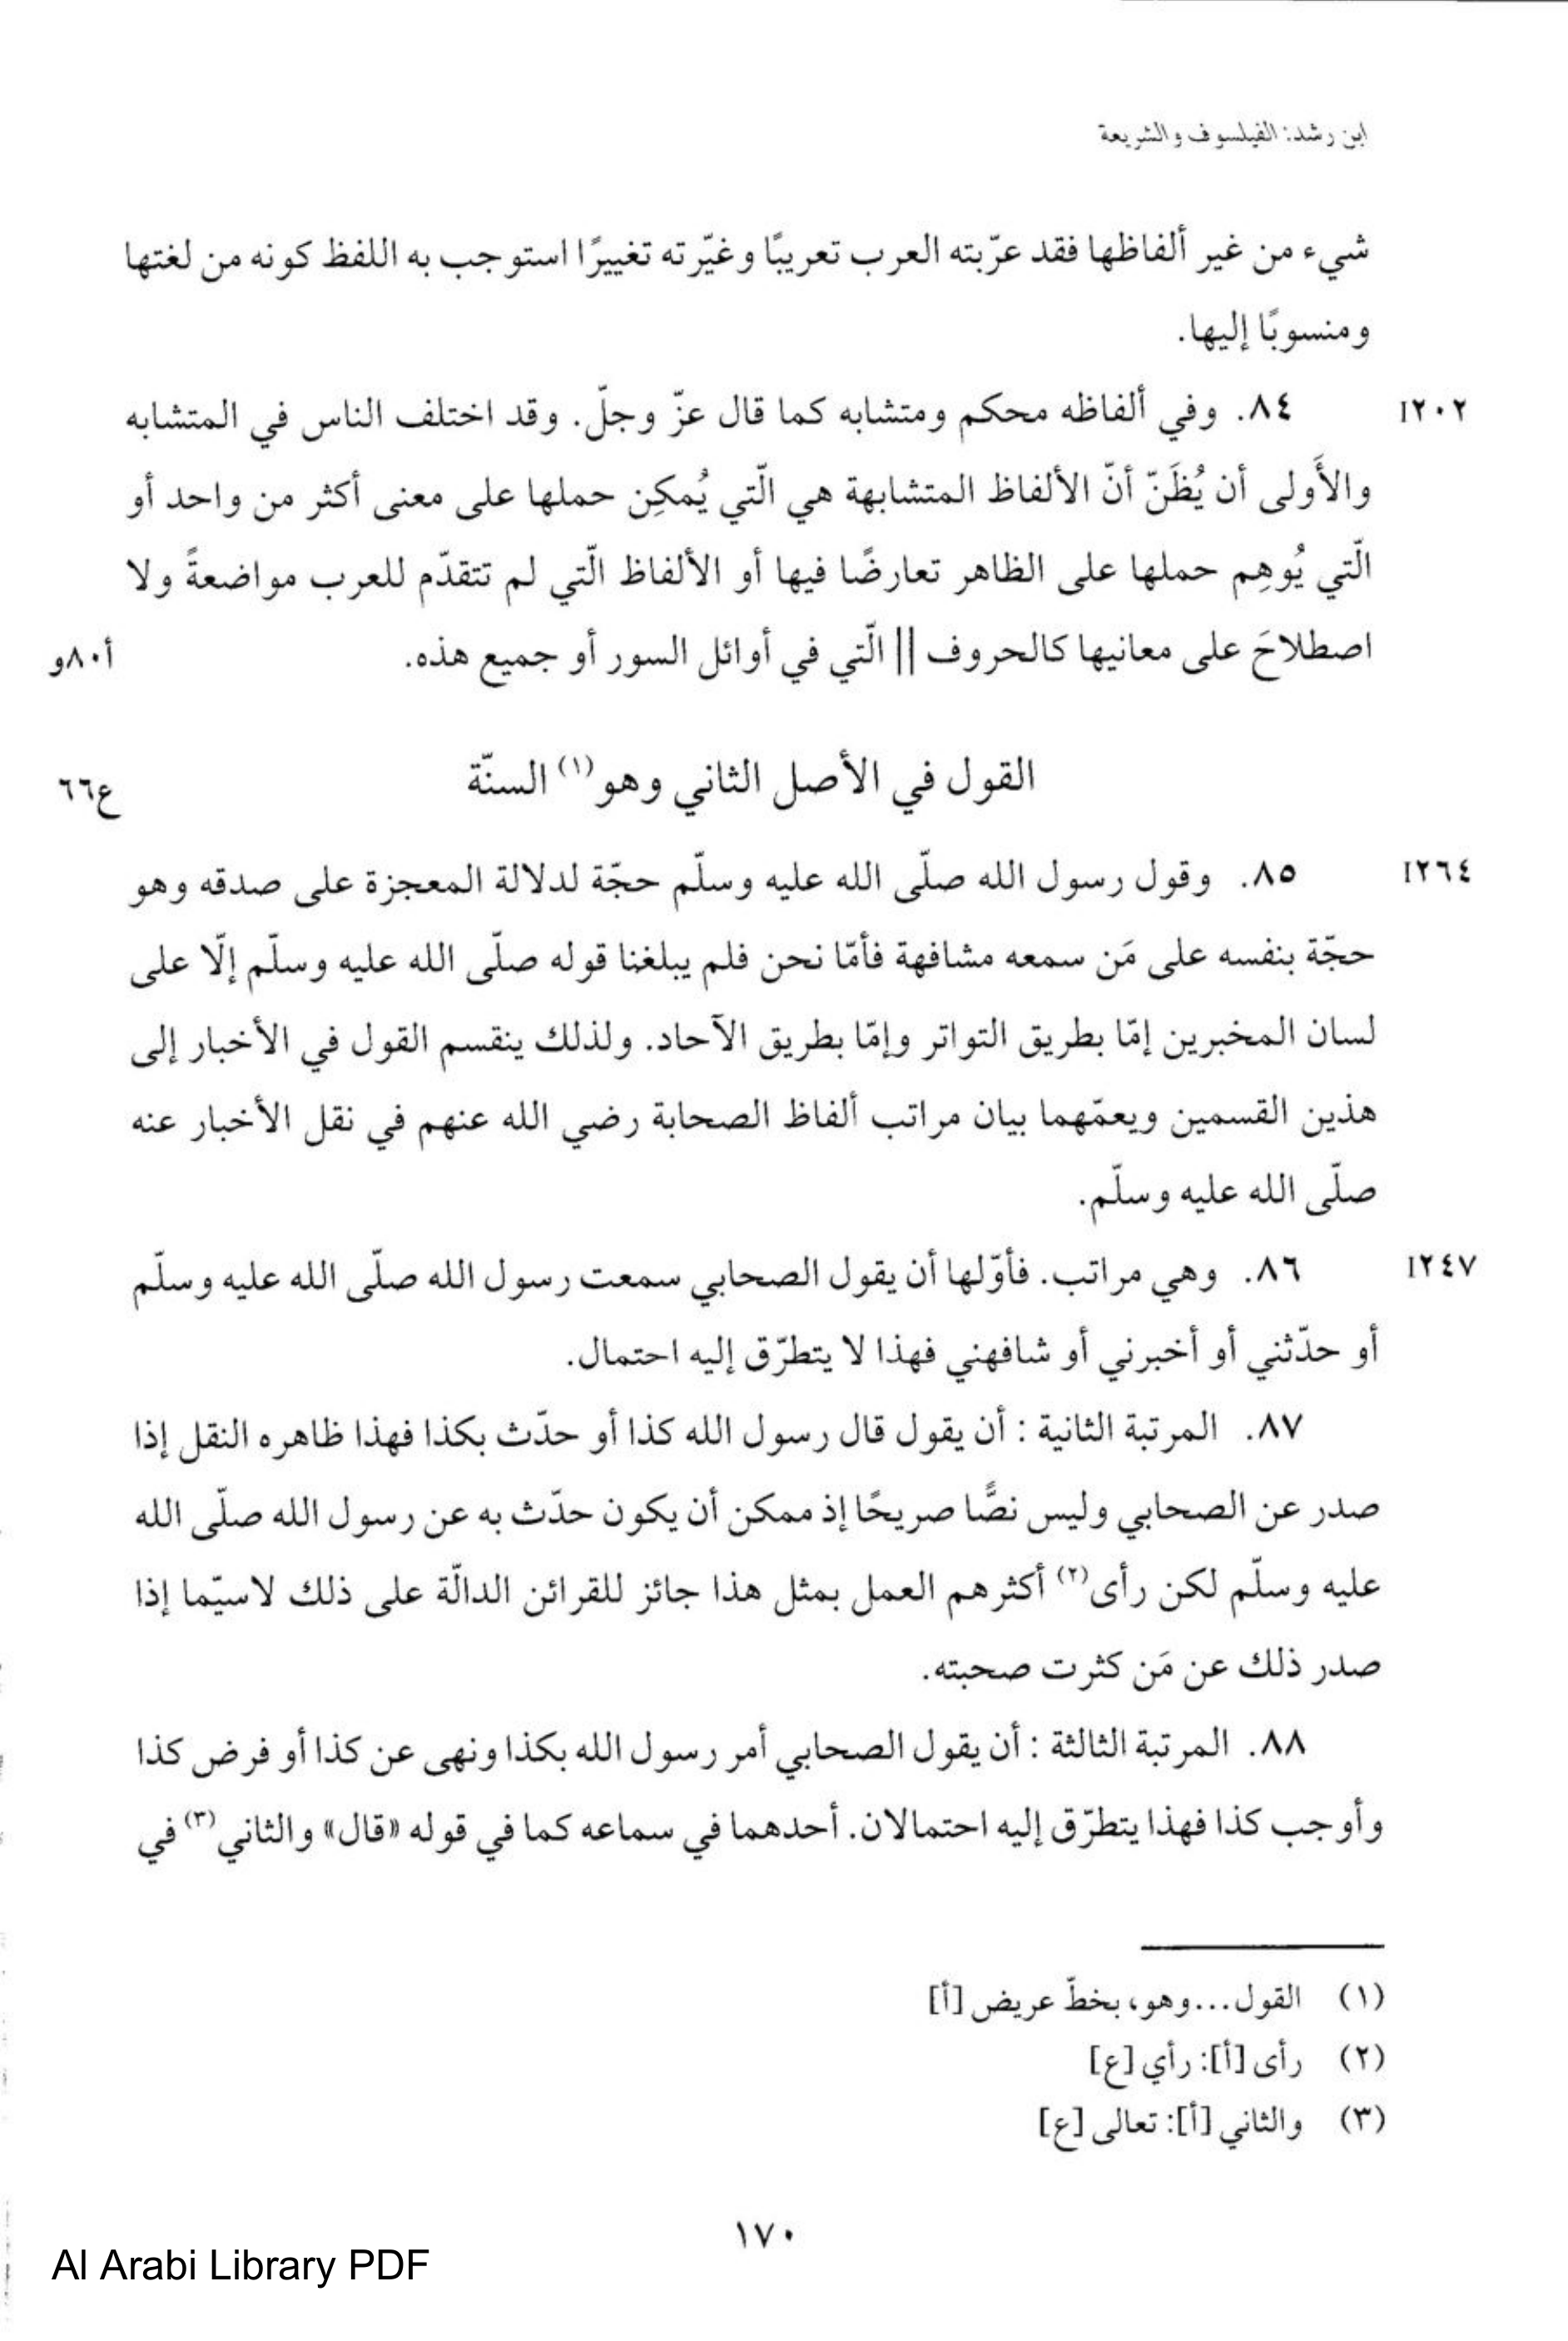 ابن رشد: الفيلسوف والشريعة
شيء من غير ألفاظها فقد عرّبته العرب تعريبًا وغيّرته تغييرًا استوجب به اللفظ كونه من لغتها
ومنسوبًا إليها.
I٢٠٢ ٨٤. وفي ألفاظه محكم ومتشابه كما قال عزّ وجلّ. وقد اختلف الناس في المتشابه
والأَولى أن يُظَنّ أنّ الألفاظ المتشابهة هي الّتي يُمكِن حملها على معنى أكثر من واحد أو
الّتي يُوهِم حملها على الظاهر تعارضًا فيها أو الألفاظ الّتي لم تتقدّم للعرب مواضعةً ولا
اصطلاحَ على معانيها كالحروف || الّتي في أوائل السور أو جميع هذه. أ٨٠و
القول في الأصل الثاني وهو(١) السنّة ع٦٦
I٢٦٤ ٨٥. وقول رسول الله صلّى الله عليه وسلّم حجّة لدلالة المعجزة على صدقه وهو
حجّة بنفسه على مَن سمعه مشافهة فأمّا نحن فلم يبلغنا قوله صلّى الله عليه وسلّم إلّا على
لسان المخبرين إمّا بطريق التواتر وإمّا بطريق الآحاد. ولذلك ينقسم القول في الأخبار إلى
هذين القسمين ويعمّهما بيان مراتب ألفاظ الصحابة رضي الله عنهم في نقل الأخبار عنه
صلّى الله عليه وسلّم.
I٢٤٧ ٨٦. وهي مراتب. فأوّلها أن يقول الصحابي سمعت رسول الله صلّى الله عليه وسلّم
أو حدّثني أو أخبرني أو شافهني فهذا لا يتطرّق إليه احتمال.
٨٧. المرتبة الثانية : أن يقول قال رسول الله كذا أو حدّث بكذا فهذا ظاهره النقل إذا
صدر عن الصحابي وليس نصًّا صريحًا إذ ممكن أن يكون حدّث به عن رسول الله صلّى الله
عليه وسلّم لكن رأى(٢) أكثرهم العمل بمثل هذا جائز للقرائن الدالّة على ذلك لاسيّما إذا
صدر ذلك عن مَن كثرت صحبته.
٨٨. المرتبة الثالثة : أن يقول الصحابي أمر رسول الله بكذا ونهى عن كذا أو فرض كذا
وأوجب كذا فهذا يتطرّق إليه احتمالان. أحدهما في سماعه كما في قوله «قال» والثاني(٣) في
(١) القول...وهو، بخطّ عريض [أ]
(٢) رأى [أ]: رأي [ع]
(٣) والثاني [أ]: تعالى [ع]
١٧٠
Al Arabi Library PDF